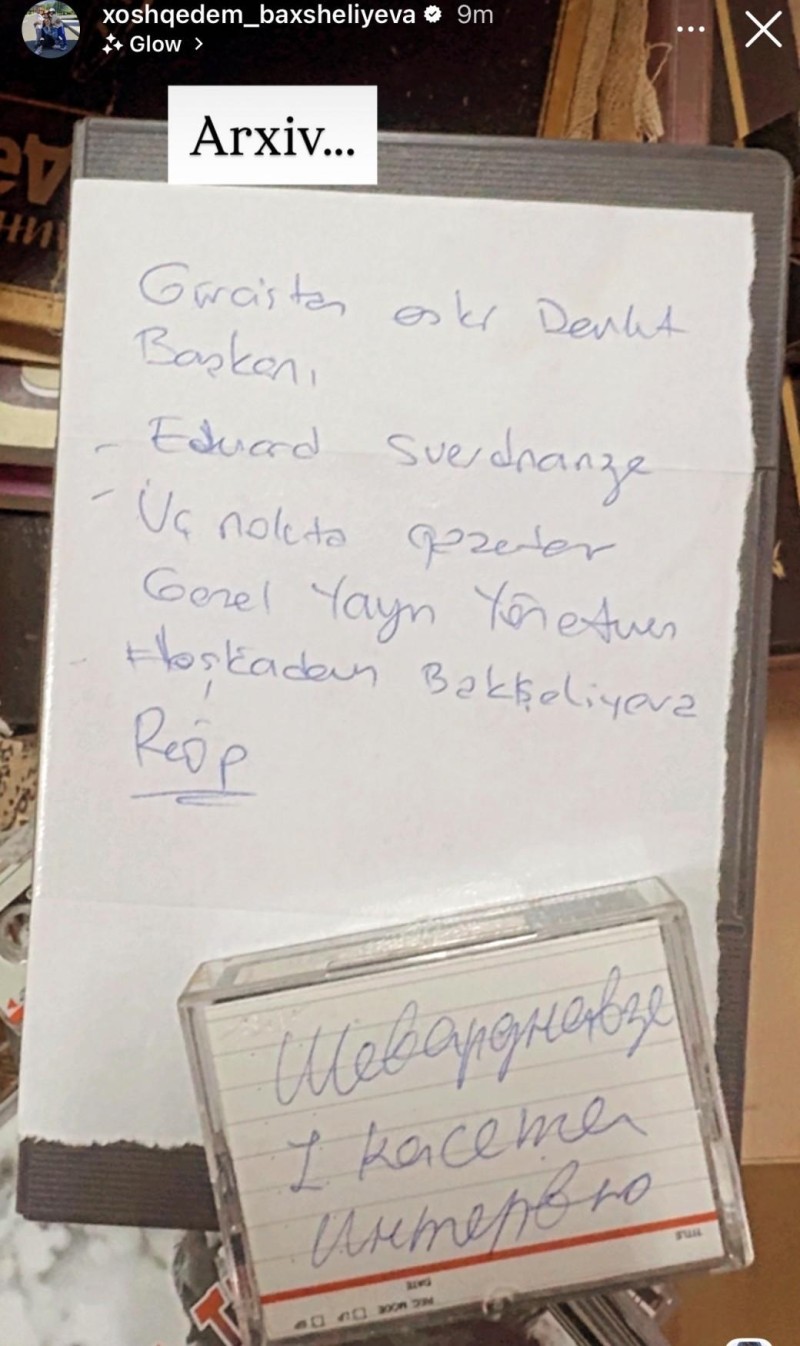 xoshqedem_baxsheliyeva 9m
Glow >
Arxiv...
Gürcistan eski Devlet
Başkanı
- Eduard Sverdnanze
- Üç nokta gazetesi
Genel Yayın Yönetmeni
- Hoşkadem Bakşeliyeva
Reöp
Шеварднадзе
1 касета
Интервю
TITLE
DATE
REC MODE